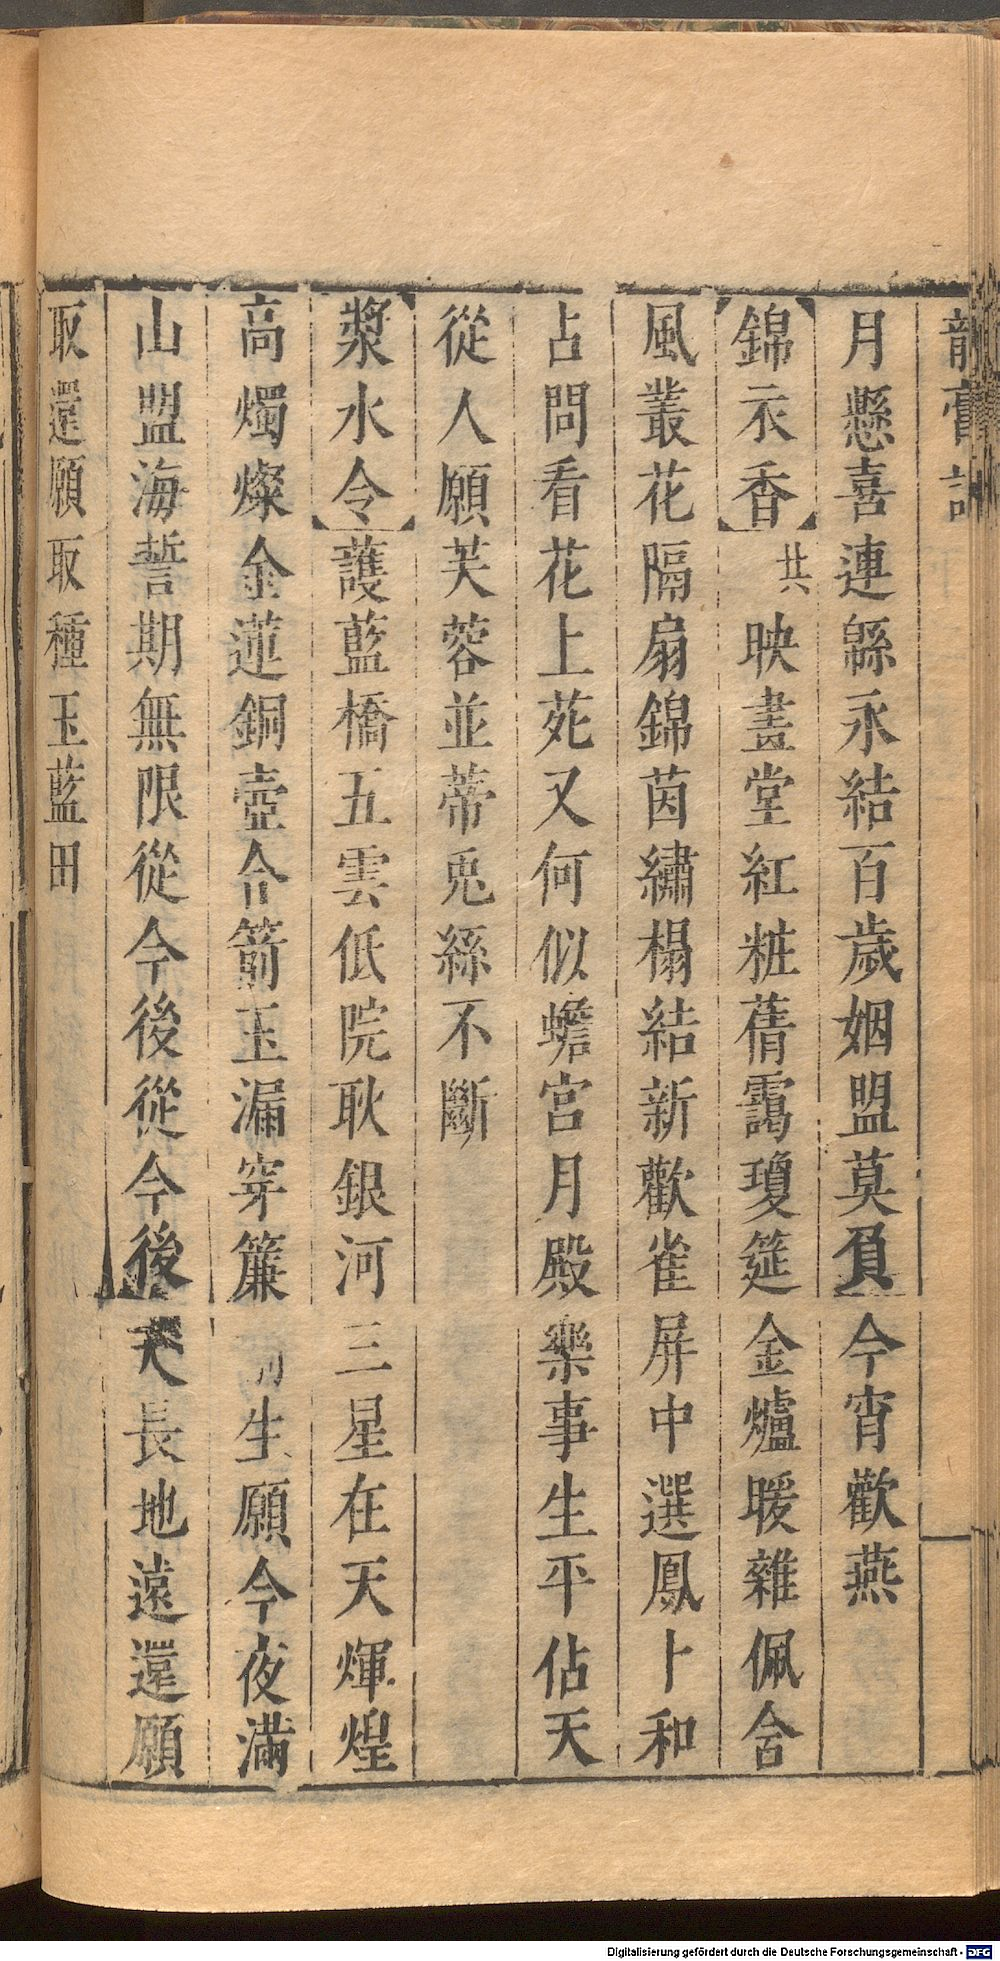 龍膏記
月懸喜連緜永結百歲姻盟莫負今宵歡燕
錦衣香 共 映畫堂紅粧蒨靄瓊筵金爐暖雜佩含
風叢花隔扇錦茵繡榻結新歡雀屏中選鳳卜和
占問看花上苑又何似蟾宮月殿樂事生平佔天
從人願芙蓉並蒂兎絲不斷
漿水令 護藍橋五雲低院耿銀河三星在天煇煌
高燭燦金蓮銅壺合箭玉漏穿簾 生願今夜滿
山盟海誓期無限從今後從今後天長地遠還願
取還願取種玉藍田
Digitalisierung gefördert durch die Deutsche Forschungsgemeinschaft - DFG